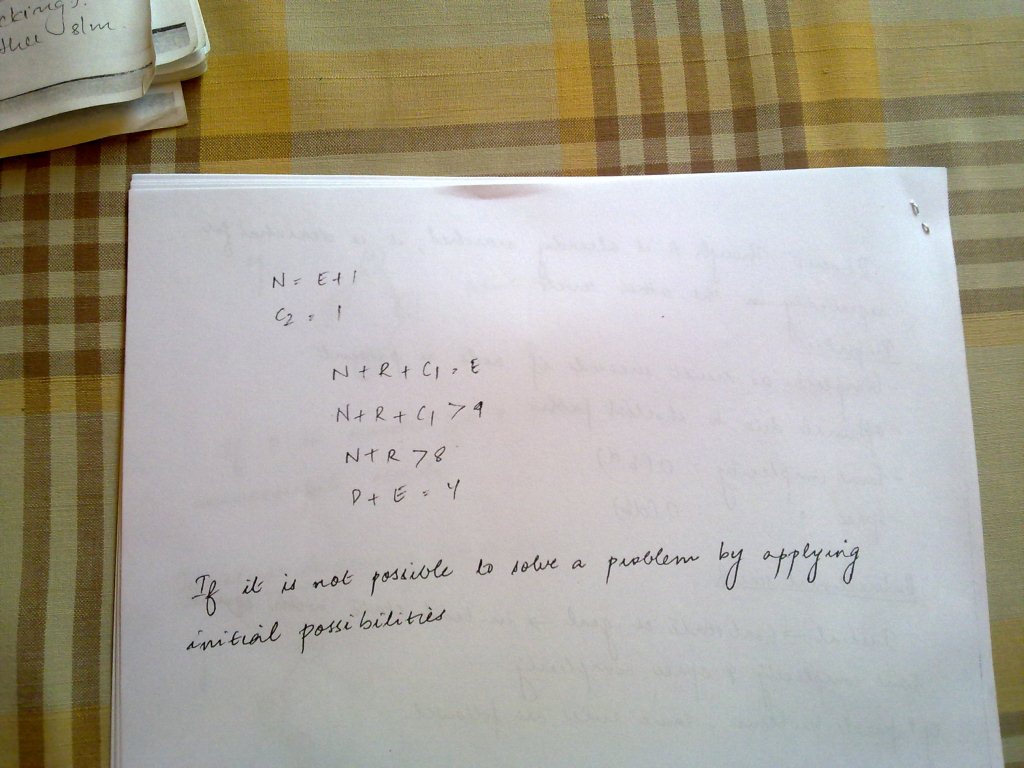 ckings.
slm.
N = E+1
C2 = 1
N + R + C1 = E
N + R + C1 > 9
N + R > 8
D + E = Y
If it is not possible to solve a problem by applying
initial possibilities